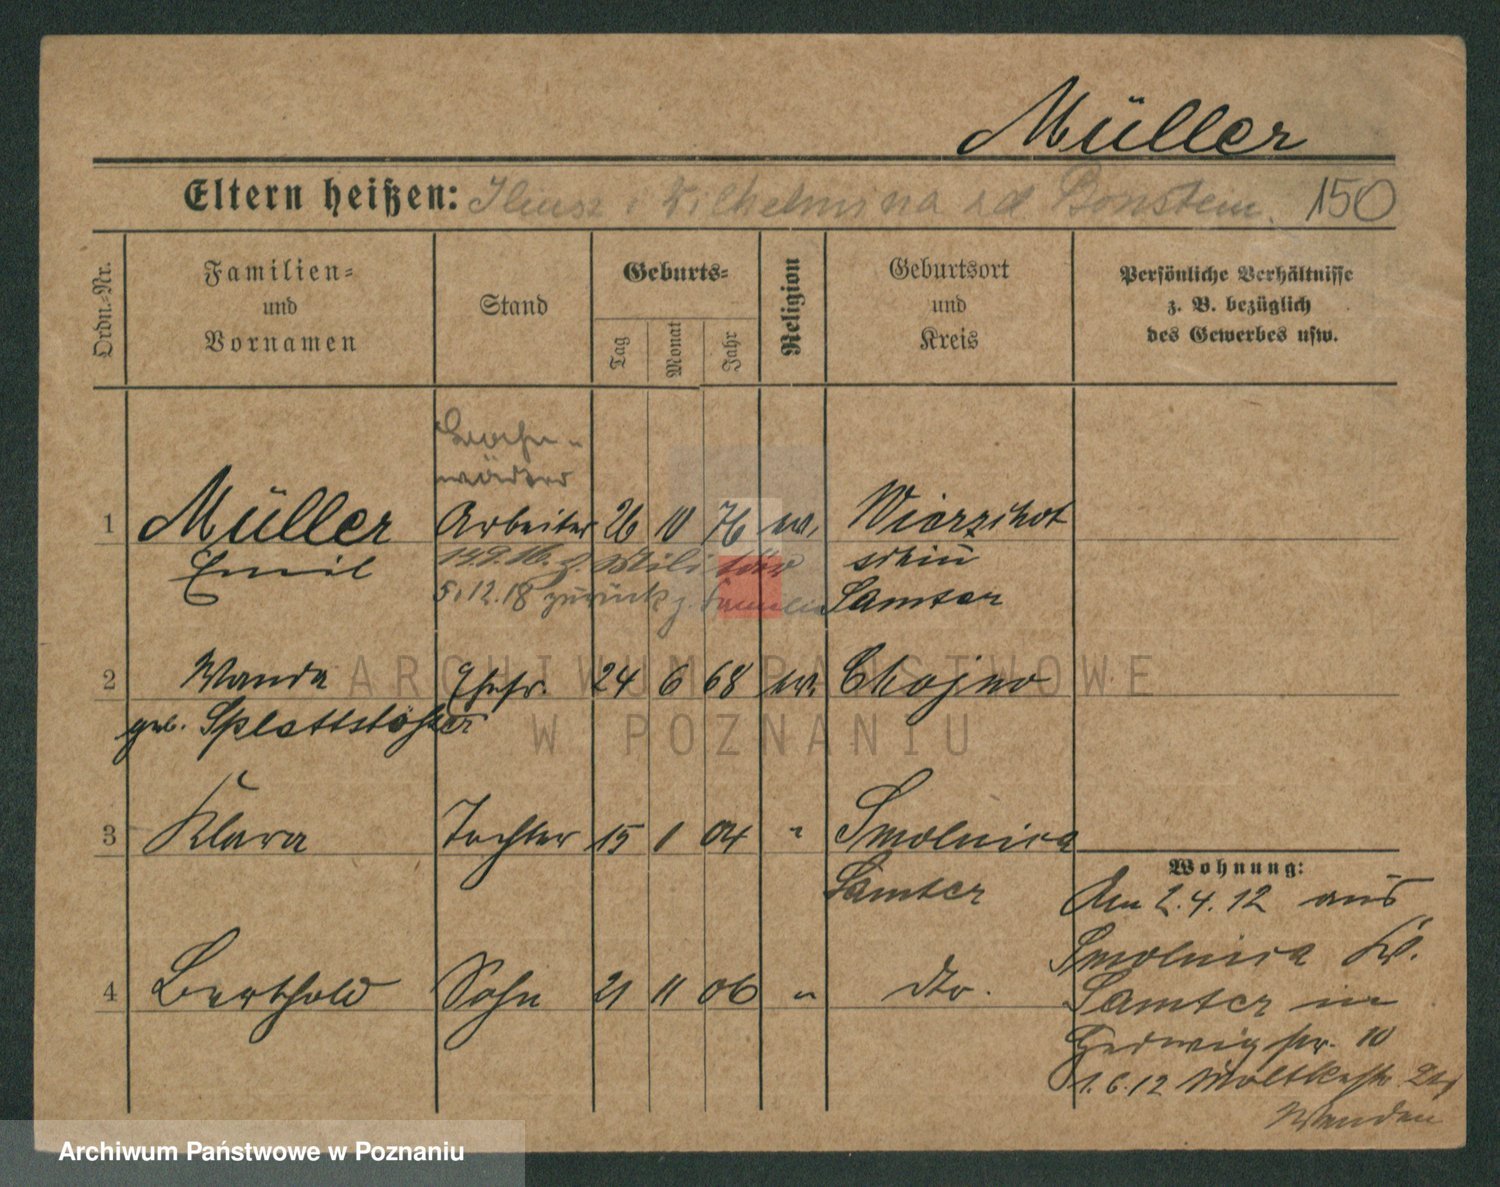 Müller
Eltern heißen: Wilhelmina 150
Ordn.-Nr.
Familien-
und
Vornamen
Stand
Geburts-
Tag
Monat
Jahr
Religion
Geburtsort
und
Kreis
Persönliche Verhältnisse
z. B. bezüglich
des Gewerbes usw.
1 Müller Arbeiter 26 10 76 ev.
Emil
Militär
Samter
5.12.18 zurück z. Familie
2 Wanda Ehefr. 24 6 68 ev. Chojno
geb. Splettstößer
3 Klara Tochter 15 1 04 " Smolnica
Samter
4 Berthold Sohn 21 11 06 " dto.
Wohnung:
Am 2.4.12 aus
Smolnica Kr.
Samter in
Hedwigstr. 10
1.6.12 Moltkestr.
ARCHIWUM PAŃSTWOWE
W POZNANIU
Archiwum Państwowe w Poznaniu